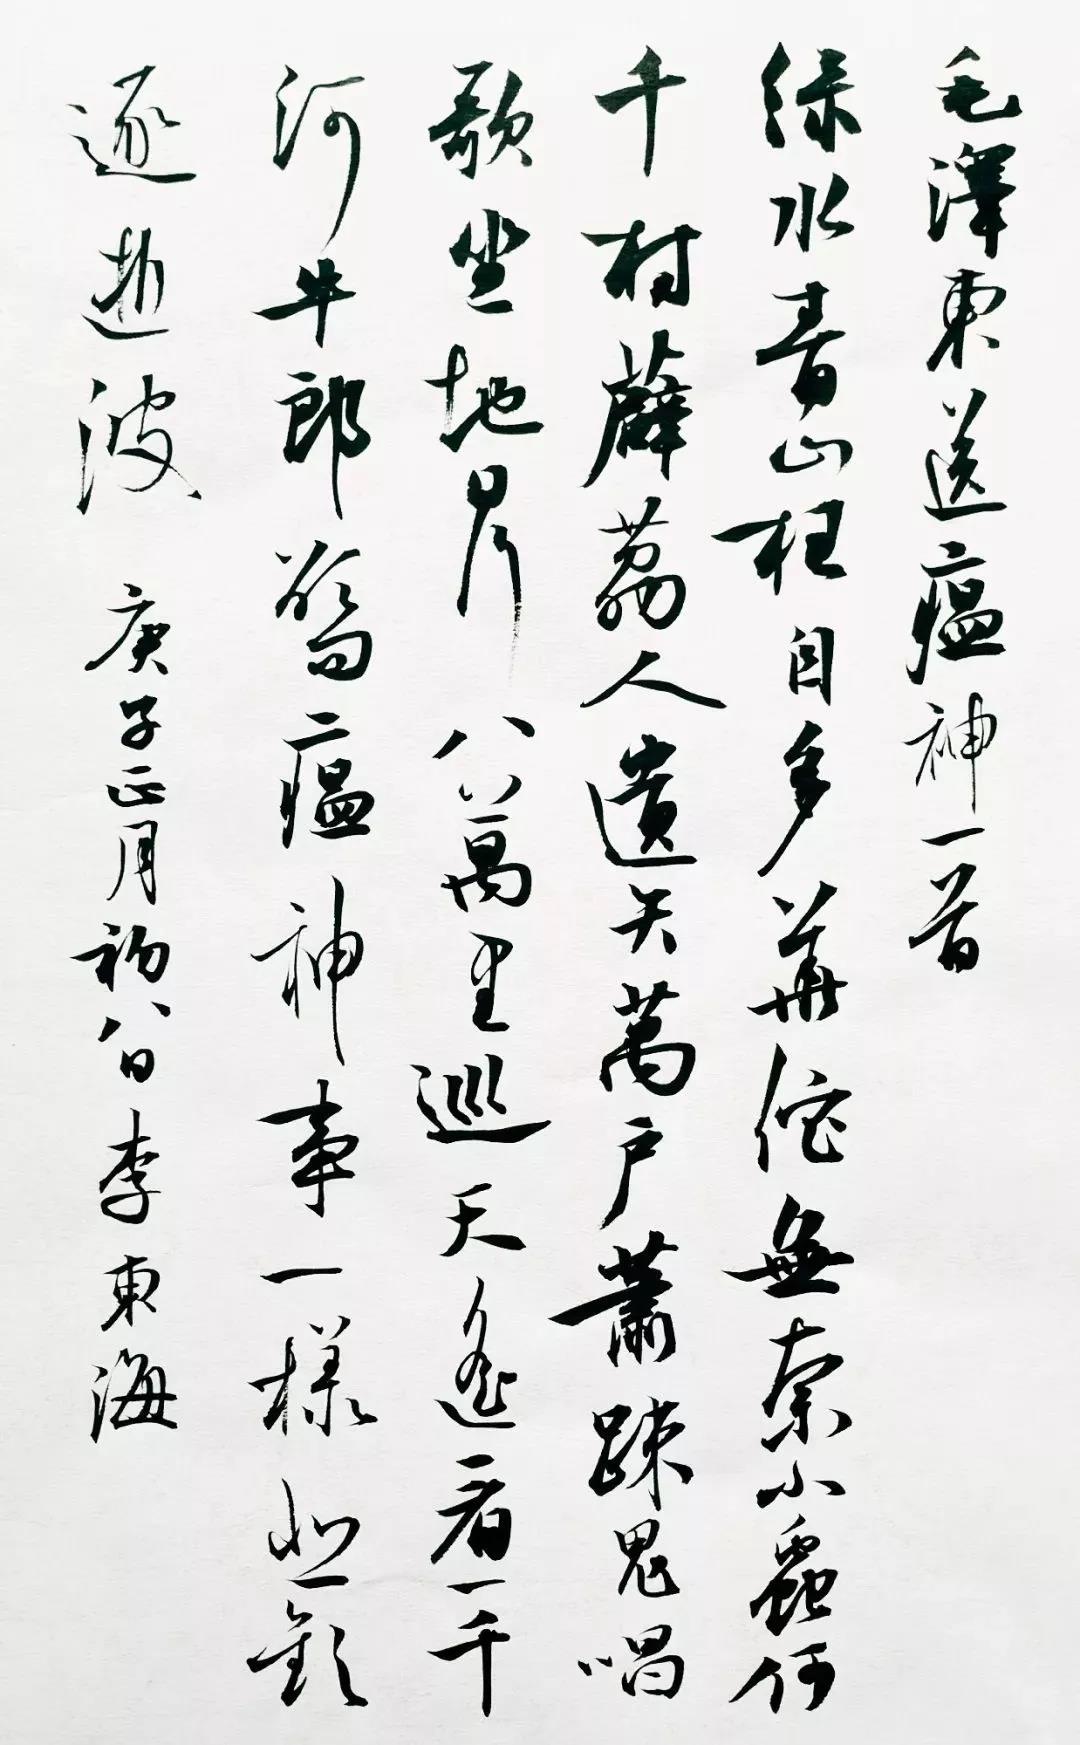 毛澤東送瘟神一首
绿水青山枉自多華佗無奈小蟲何
千村薜荔人遺矢萬户蕭踈鬼唱
歌坐地日行八萬里巡天遥看一千
河牛郎欲问瘟神事一樣悲歡
逐逝波 庚子正月初八日李東海